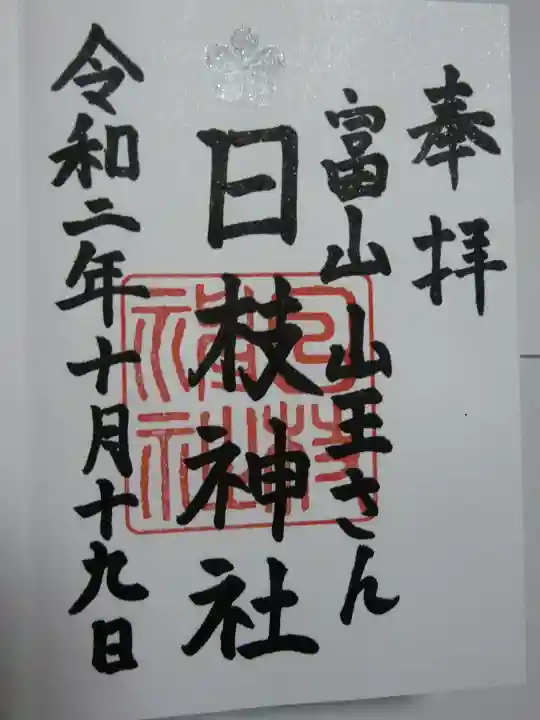 奉拝
富山 山王さん
日枝神社
令和二年十月十九日